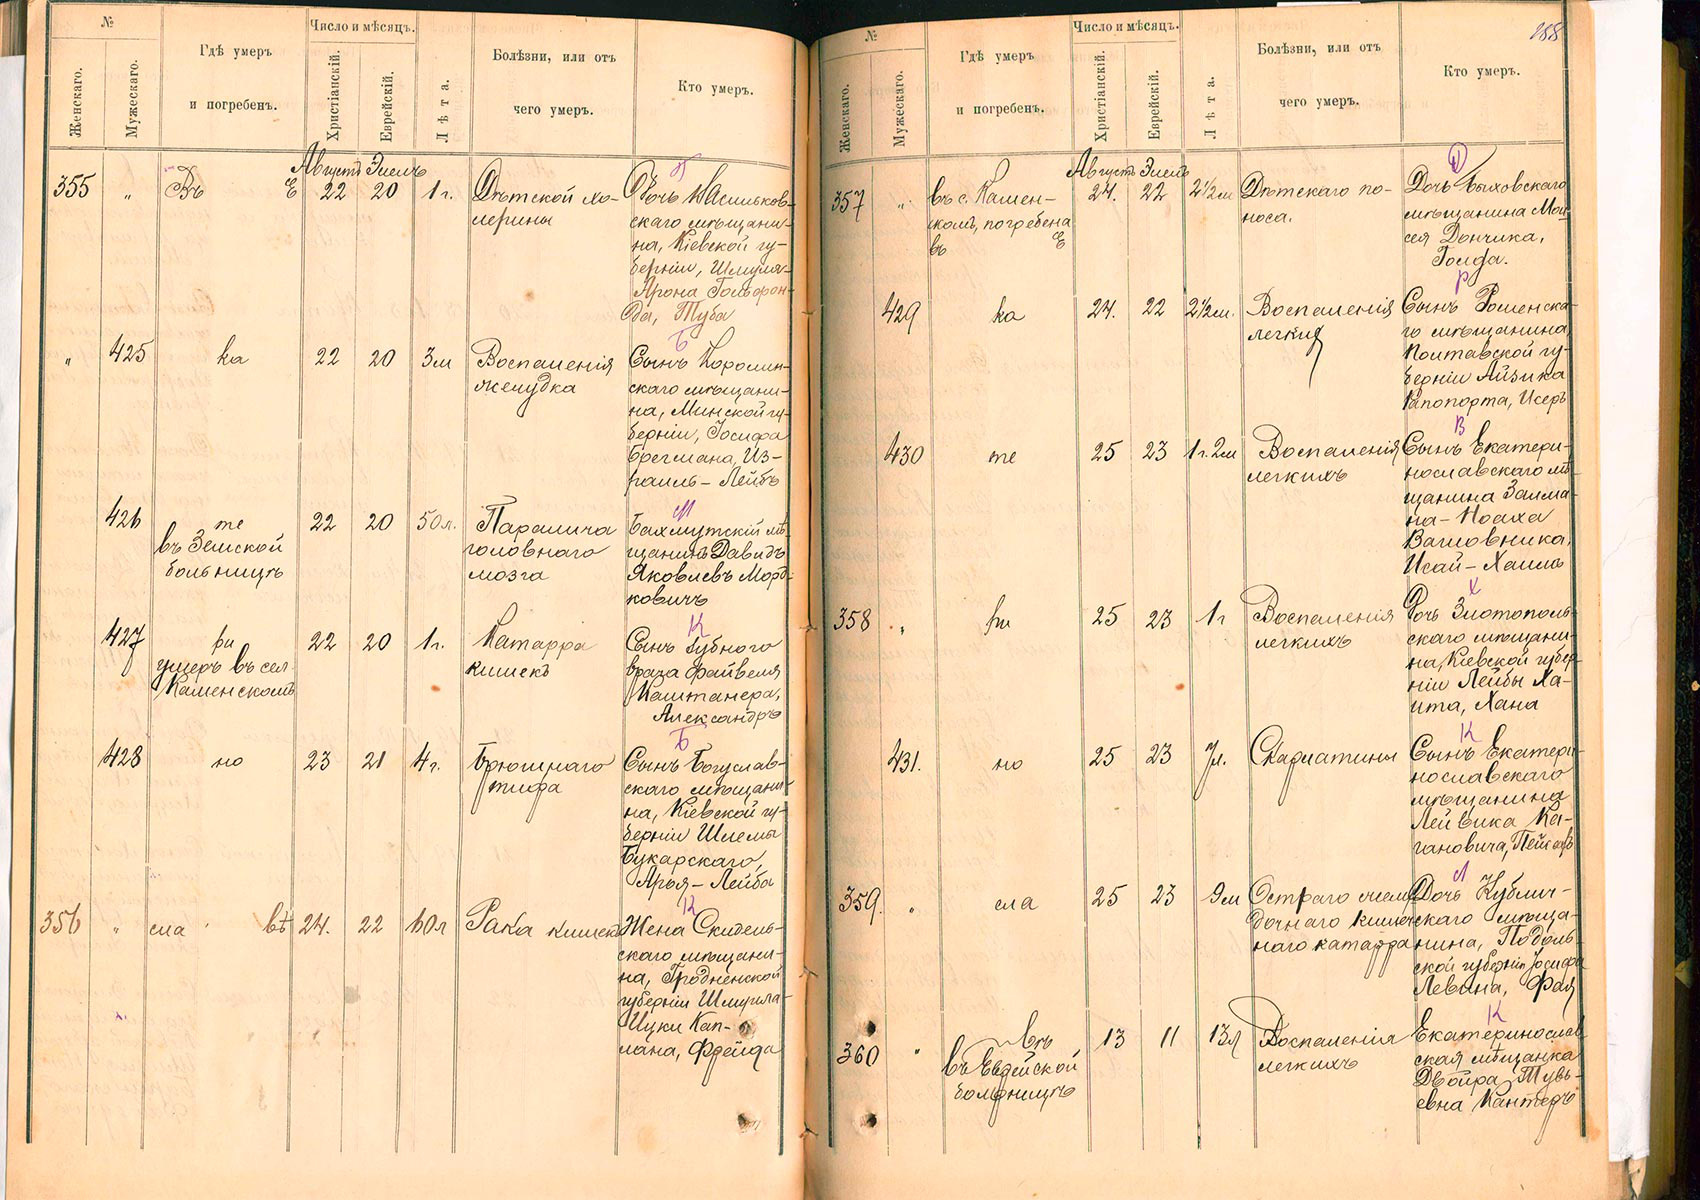 №
Женскаго.
Мужескаго.
Гдѣ умеръ
и погребенъ.
Число и мѣсяцъ.
Христіанскій.
Еврейскій.
Лѣта.
Болѣзни, или отъ
чего умеръ.
Кто умеръ.
Августъ Элелъ
355 „ Въ Е 22 20 1 г.
Дѣтской хо-
лерины
Г
Дочь Васильков-
скаго мѣщани-
на, Кіевской гу-
берніи, Шмуля-
Арона Гольдфон-
да, Туба
„ 425 ка 22 20 3 м
Воспаленія
желудка
Б
Сынъ
скаго мѣщани-
на, Минской гу-
берніи, Іосифа
Брегмана, Из-
раиль-Лейбъ
426 те
въ Земской
больницѣ
22 20 50 л.
Паралича
головнаго
мозга
М
Бахмутскій мѣ-
щанинъ Давидъ
Яковлевъ Морд-
ковичъ
427 ри
умеръ въ сел.
Каменскомъ
22 20 1 г.
Катарра
кишекъ
К
Сынъ зубного
врача Файвеля
Каштанера,
Александръ
428 но 23 21 4 г.
Брюшнаго
тифа
Б
Сынъ Богуслав-
скаго мѣщани-
на, Кіевской гу-
берніи Шлемы
Букарскаго,
Арья-Лейба
356 „ сла вѣ 24. 22 60 л
Рака кишекъ
К
Жена Скидель-
скаго мѣщани-
на, Гродненской
губерніи Шмуила-
Ицки Кап-
лана, Фрейда
288
№
Женскаго.
Мужескаго.
Гдѣ умеръ
и погребенъ.
Число и мѣсяцъ.
Христіанскій.
Еврейскій.
Лѣта.
Болѣзни, или отъ
чего умеръ.
Кто умеръ.
Августъ Элелъ
357 „
въ с. Камен-
скомъ, погребена
въ Е
24. 22 2 1/2 м
Дѣтскаго по-
носа.
Д
Дочь Быховскаго
мѣщанина Мой-
сея Дончика,
Голда.
429 ка 24. 22 2 1/2 м.
Воспаленія
легких
Р
Сынъ Роменска-
го мѣщанина,
Полтавской гу-
берніи Айзика
Рапопорта, Исеръ
430 те 25 23 1 г. 2 м
Воспаленія
легкихъ
В
Сынъ Екатери-
нославскаго мѣ-
щанина Залма-
на-Ноаха
Вагловника,
Исай-Хаимъ
358 „ ри 25 23 1 г
Воспаленія
легкихъ
Х
Дочь Златополь-
скаго мѣщани-
на, Кіевской губер-
ніи Лейбы Ха-
ита, Хана
431. но 25 23 7 л.
Скарлатины
К
Сынъ Екатери-
нославскаго
мѣщанина
Лейвика Ка-
гановича, Пейсахъ
359. „ сла 25 23 9 м
Остраго желу-
дочнаго кишеч-
наго катарра
Л
Дочь Кублич-
скаго мѣща-
нина, Подоль-
ской губерніи Іосифа
Левина, Фая
360 „ въ
въ Еврейской
больницѣ
13 11 13 л
Воспаленія
легкихъ
К
Екатеринослав-
ская мѣщанка
Двойра Тувь-
евна Канторъ